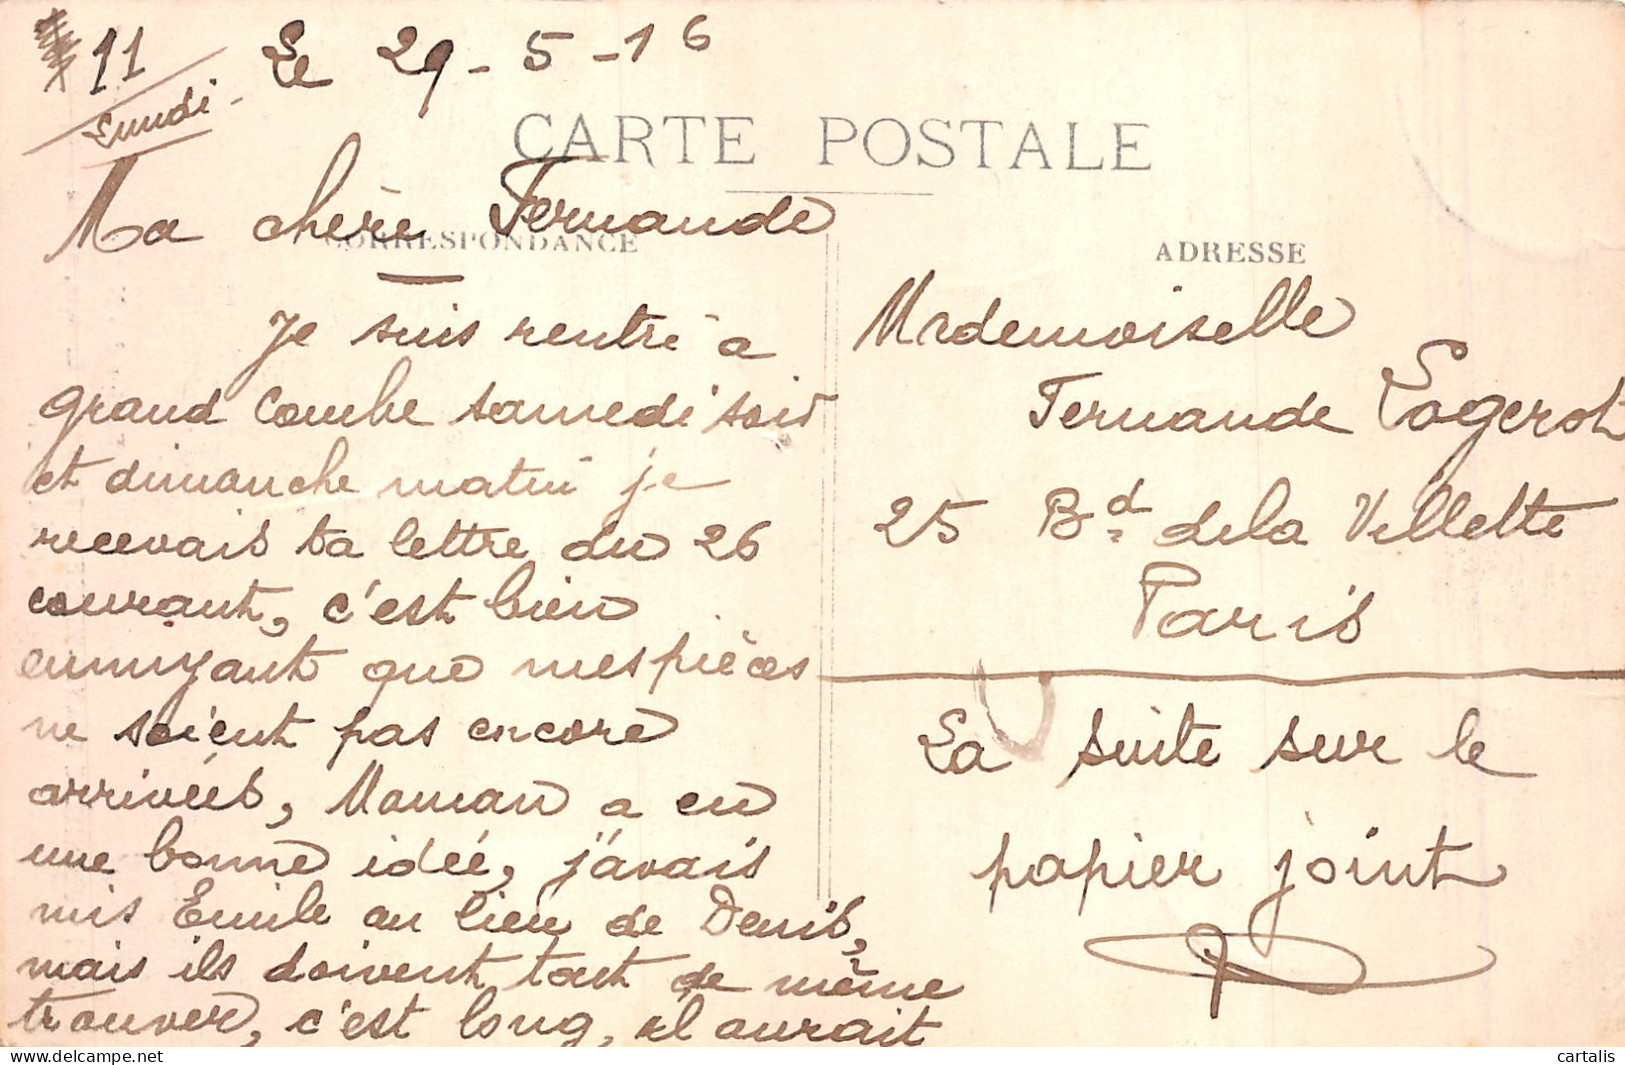 11 Le 29-5-16
Lundi
CARTE POSTALE
Ma chère Fernande
CORRESPONDANCE
Je suis rentré à
grand Combe samedi soir
et dimanche matin je
recevais ta lettre du 26
courant, c'est bien
ennuyant que mes pièces
ne soient pas encore
arrivées, Maman a eu
une bonne idée, j'avais
mis Emile au lieu de Denis,
mais ils doivent tout de même
trouver, c'est long, il aurait
ADRESSE
Mademoiselle
Fernande Logerot
25 Bd. de la Villette
Paris
La suite sur le
papier joint
cartalis